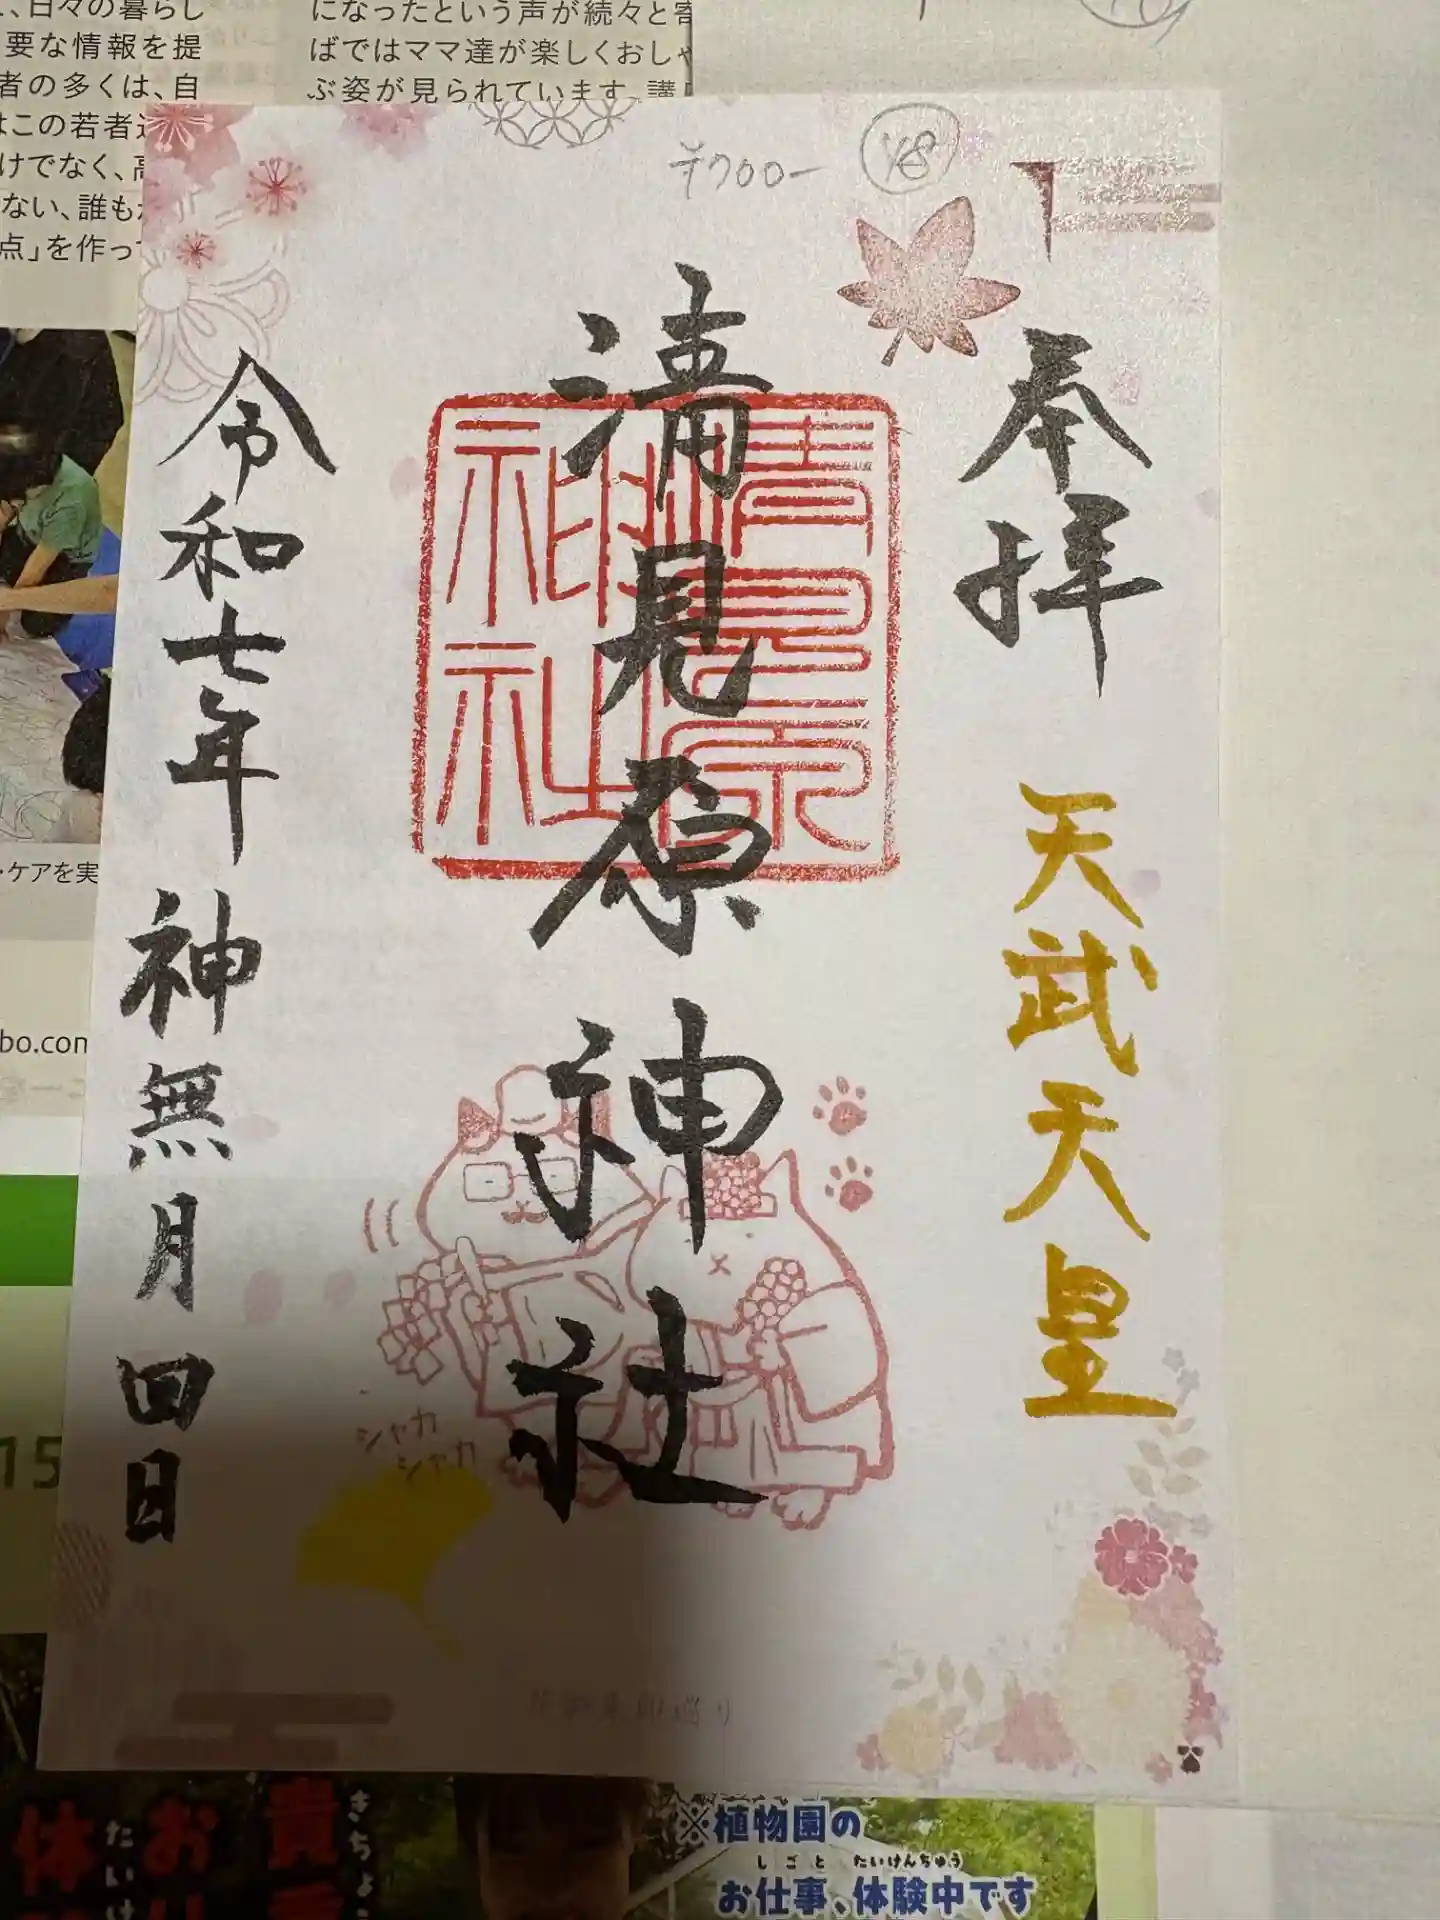 、日々の暮らし
要な情報を提
者の多くは、自
はこの若者
けでなく、高
ない、誰も
点」を作っ
になったという声が続々と寄
ばではママ達が楽しくおしゃ
ぶ姿が見られています。講
¥700-
奉拝
天武天皇
清見原神社
清見原
神社
令和七年神無月四日
シャカ
シャカ
・ケアを実
bo.com
15
貴
さちょ
お
体
たいけ
※植物園の
しごと たいけんちゅう
お仕事、体験中です